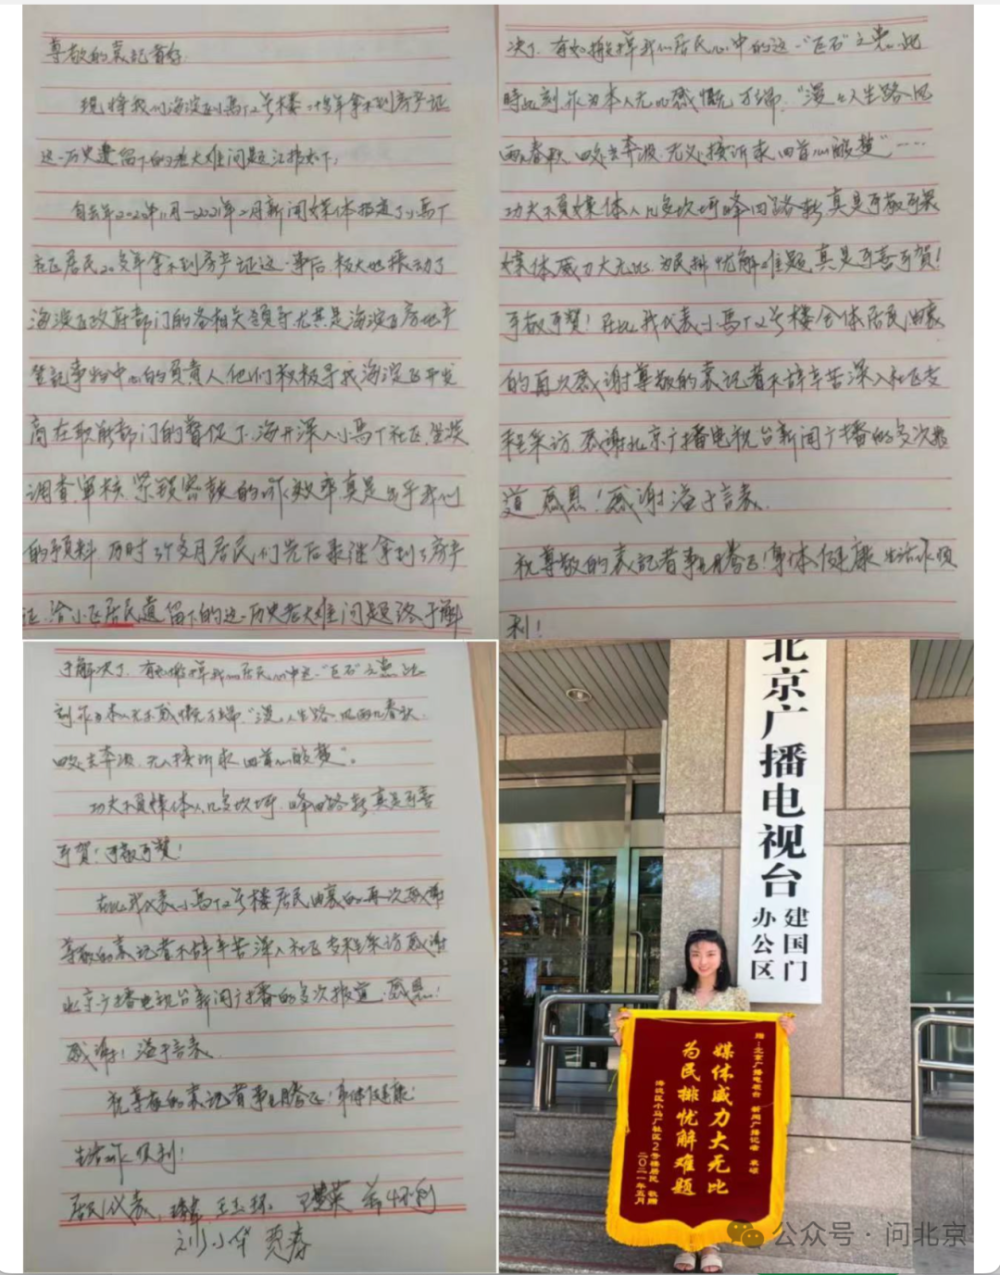 尊敬的袁记者好:
现将我们海淀区小马厂2号楼二十多年拿不到房产证
这一历史遗留下的老大难问题汇报如下:
自去年2020年11月—2021年2月新闻媒体报道了小马厂
社区居民20多年拿不到房产证这一事后,极大地振动了
海淀区政府部门的各相关领导尤其是海淀区房地产
登记事物中心的负责人,他们积极寻找海淀区开发
商在职能部门的督促下,
调查审核
效率真是出乎我们
的预料 历时3个多月居民们先后陆续拿到了房产
证,给小区居民遗留下的这一历史老大难问题终于解
决了,有如搬掉我们居民心中的这一"巨石"之患。此
时此刻
本人无比感慨万端,"漫漫人生路,风
雨春秋 四处奔波 无人接诉求,回首心酸楚"……
功夫不负媒体人几多坎坷 峰回路转 真是可敬
媒体威力大无比 为民排忧解难题,真是可喜可贺!
可敬可赞!在此我代表小马厂2号楼全体居民由衷
的再次感谢尊敬的袁记者不辞辛苦深入社区
采访 感谢北京广播电视台新闻广播的多次报
道 感恩!感谢 溢于言表。
祝尊敬的袁记者事业腾飞!身体健康 生活 顺
利!
于解决了,有如搬掉我们居民心中这一"巨石"之患,此
刻 本人 感慨万端"漫漫人生路 风雨春秋,
四处奔波 无人接诉求 回首心酸楚"。
功夫不负媒体人几多坎坷 峰回路转 真是可喜
可贺!可敬可赞!
在此我代表小马厂2号楼居民由衷的再次感谢
尊敬的袁记者不辞辛苦深入社区 采访 感谢
北京广播电视台新闻广播的多次报道,感恩!
感谢!溢于言表。
祝尊敬的袁记者事业腾飞!身体健康!
生活 顺利!
居民代表, 王玉环
刘小华 贾春
北京广播电视台
建国门
办公区
赠:北京广播电视台 新闻广播记者
媒体威力大无比
为民排忧解难题
海淀区小马厂社区2号楼居民 敬赠
二〇二一年五月
公众号·问北京